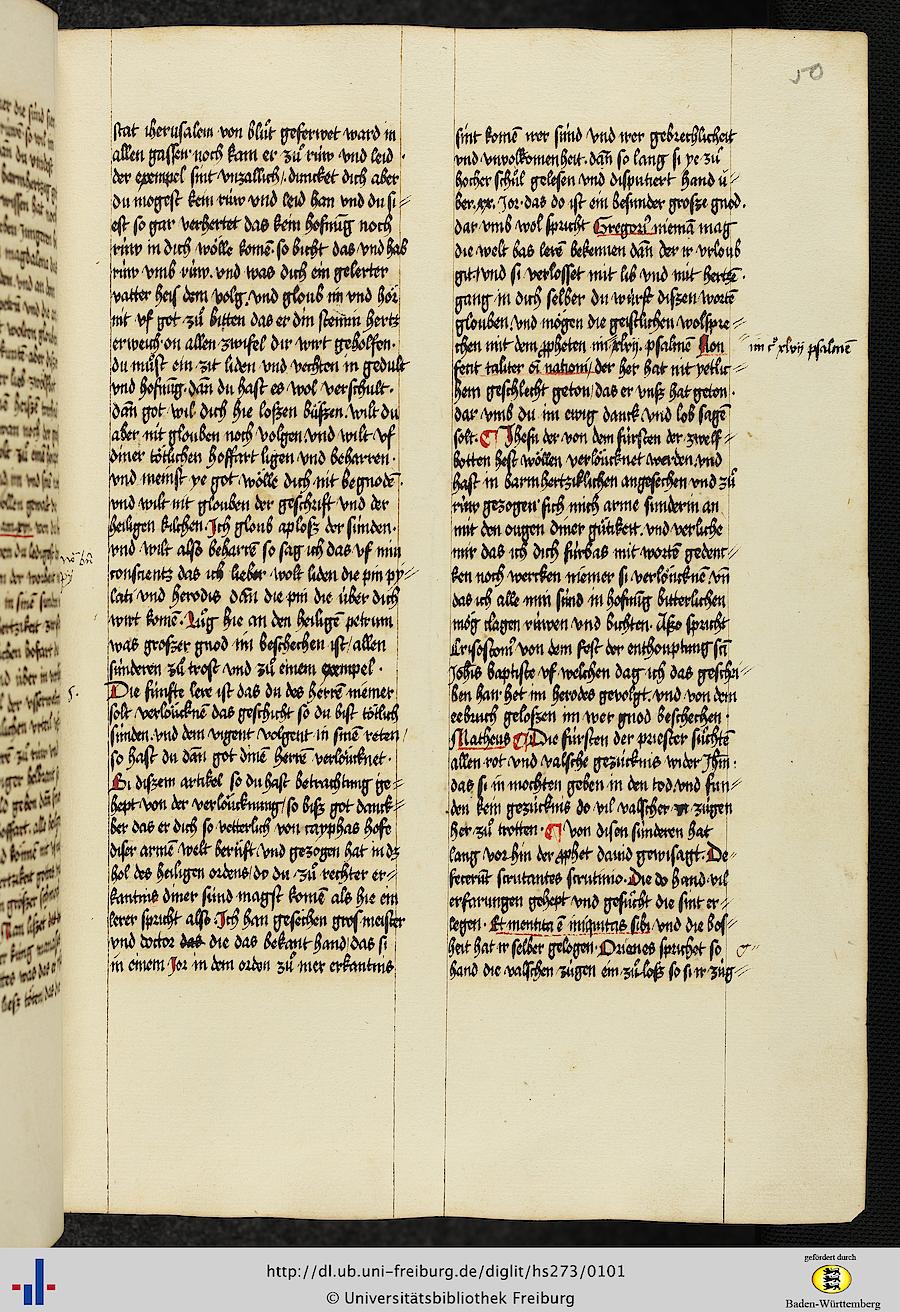 50
stat iherusalem von blůt geferwet ward in
allen gassen noch kam er zů rúw vnd leid ·
der exempel sint vnzallich / duncket dich aber
du mogest kein rúw vnd leid han vnd du si=
est so gar verhertet das kein hofnūg noch
rúw in dich wólle komē · so bicht das vnd hab
rúw vmb rúw · vnd was dich ein gelerter
vatter heis dem volg · vnd gloub im vnd hór
nit vf got zů bitten das er din steinin hertz
erweich on allen zwifel dir wirt geholfen ·
du můst ein zit liden vnd vechten in gedult
vnd hofnūg · dan̄ du hast es wol verschult ·
dan̄ got wil dich hie loszen bůszen · wilt du
aber nit glouben noch volgen vnd wilt vf
diner tótlichen hoffart ligen vnd beharren ·
vnd meinst ye got wólle dich nit begnodē ·
vnd wilt nit glouben der geschrift vnd der
heiligen kilchen · Ich gloub aplosz der súnden ·
vnd wilt also behartē so sag ich das vf min
conscientz das ich lieber wolt liden die pin py=
lati vnd herodis dan̄ die pin die úber dich
wirt komē · Lůg hie an den heiligē petrum
was groszer gnod im beschechen ist / allen
súnderen zů trost vnd zů einem exempel ·
Die fúnfte lere ist das du des herrē niemer
solt verlóucknē das geschicht so du bist tótlich
súnden · vnd dem vigent volgent in sinē reten /
so hast du dan̄ got dinē herrē verlóucknet ·
Bi diszem artikel so du hast betrachtung ge=
hept von der verlóucknung / so bisz got danck=
ber das er dich so vetterlich von cayphas hofe
diser armē welt berúft · vnd gezogen hat in dz
hol des heiligen ordens / do du · zů rechter er=
kantnis diner súnd magst komē als hie ein
lerer spricht also · Ich han gesechen gros meister
vnd doctor das die das bekant hand / das si
in einem Jor in dem orden zů mer erkantnis
sint komē wer súnd vnd wer gebrechlicheit
vnd vnvolkomenheit · dan̄ so lang si ye zů
hocher schůl gelesen vnd disputiert hand ú=
ber · xx · Jor · das do ist ein besunder grosze gnod ·
dar vmb wol spricht Gregori9 nieman mag
die welt bas lerē bekennen dan̄ der ir vrloub
git / vnd si verlosset mit lib vnd mit hertzē ·
gang in dich selber du wúrst diszen wortē
glouben · vnd mógen die geistlichen wol spre=
chen mit dem ꝓpheten im xlvij · psalmē Non
fecit taliter oī nationi / der her hat nit yetlic=
hem geschlecht geton / das er vnsz hat geton ·
dar vmb du im ewig danck vnd lob sagē
solt · ¶ Jhesu der von dem fúrsten der zwelf=
botten hest wóllen verlóucknet werden · vnd
hast in barmhertziklichen angesechen vnd zů
rúw gezogen sich mich arme sunderin an
mit den ougen diner gůtikeit · vnd verliche
mir das ich dich fúrbas mit wortē gedenc=
ken noch wercken niemer si verlóucknē vn̄
das ich alle min súnd in hofnūg bitterlichen
móg clagen rúwen vnd bichten · Also spricht
Crisostom9 von dem fest der enthouptung sct̄
Johīs baptiste vf welchen dag ich das geschri=
ben han het im herodes gevolgt · vnd von dem
eebruch geloszen im wer gnod beschechen ·
Matheus ¶ Die fúrsten der priester sůchtē
allen rot vnd valsche gezúcknis wider Jhm :
das si in mochten geben in den tod vnd fun=
den kein gezúcknis do vil valscher zúgen
her zů trotten · ¶ Von disen súnderen hat
lang vor hin der ꝓphet dauid gewisagt · De=
fecerūt scrutantes scrutinio · Die do hand vil
erfarungen gehept vnd gesůcht die sint er=
legen · Et mentita ē iniquitas sibi · vnd die bos=
heit hat ir selber gelogen · Origenes sprichet so
hand die valschen zúgen ein zů losz so si ir zúg=
im c̄ xlvij psalmē
5 ·